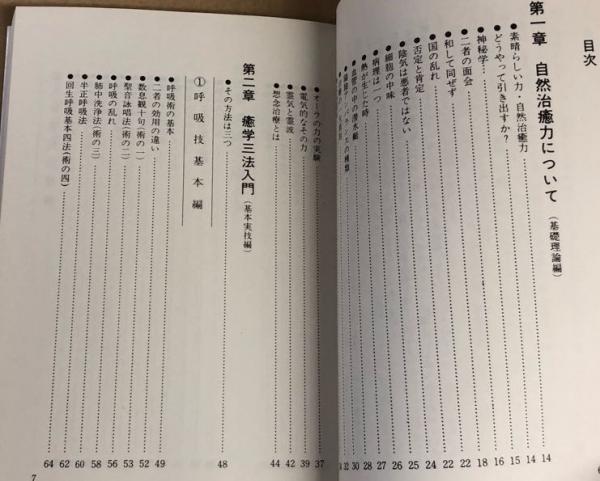 目次
第一章 自然治癒力について(基礎理論編) 14
●素晴らしい力・自然治癒力 14
●どうやって引き出すか? 15
●神秘学 16
●二者の面会 18
●和して同ぜず 22
●国の乱れ 22
●否定と肯定 24
●陰気は悪者ではない 25
●細胞の中味 26
●病理は一つ 27
●熱が生じた時 28
●血管の中の潜水艇 30
●オーラの力の実験 37
●電気的なその力 39
●霊気と霊波 42
●想念治療とは 44
第二章 癒学三法入門(基本実技編)
●その方法は三つ 48
①呼吸技基本編
●呼吸術の基本 49
●二者の効用の違い 52
●数息観十句(術の一) 53
●聖音詠唱法(術の二) 56
●呼吸の乱れ 58
●肺中洗浄法(術の三) 60
●半正呼吸法 62
●回生呼吸基本四法(術の四) 64
7